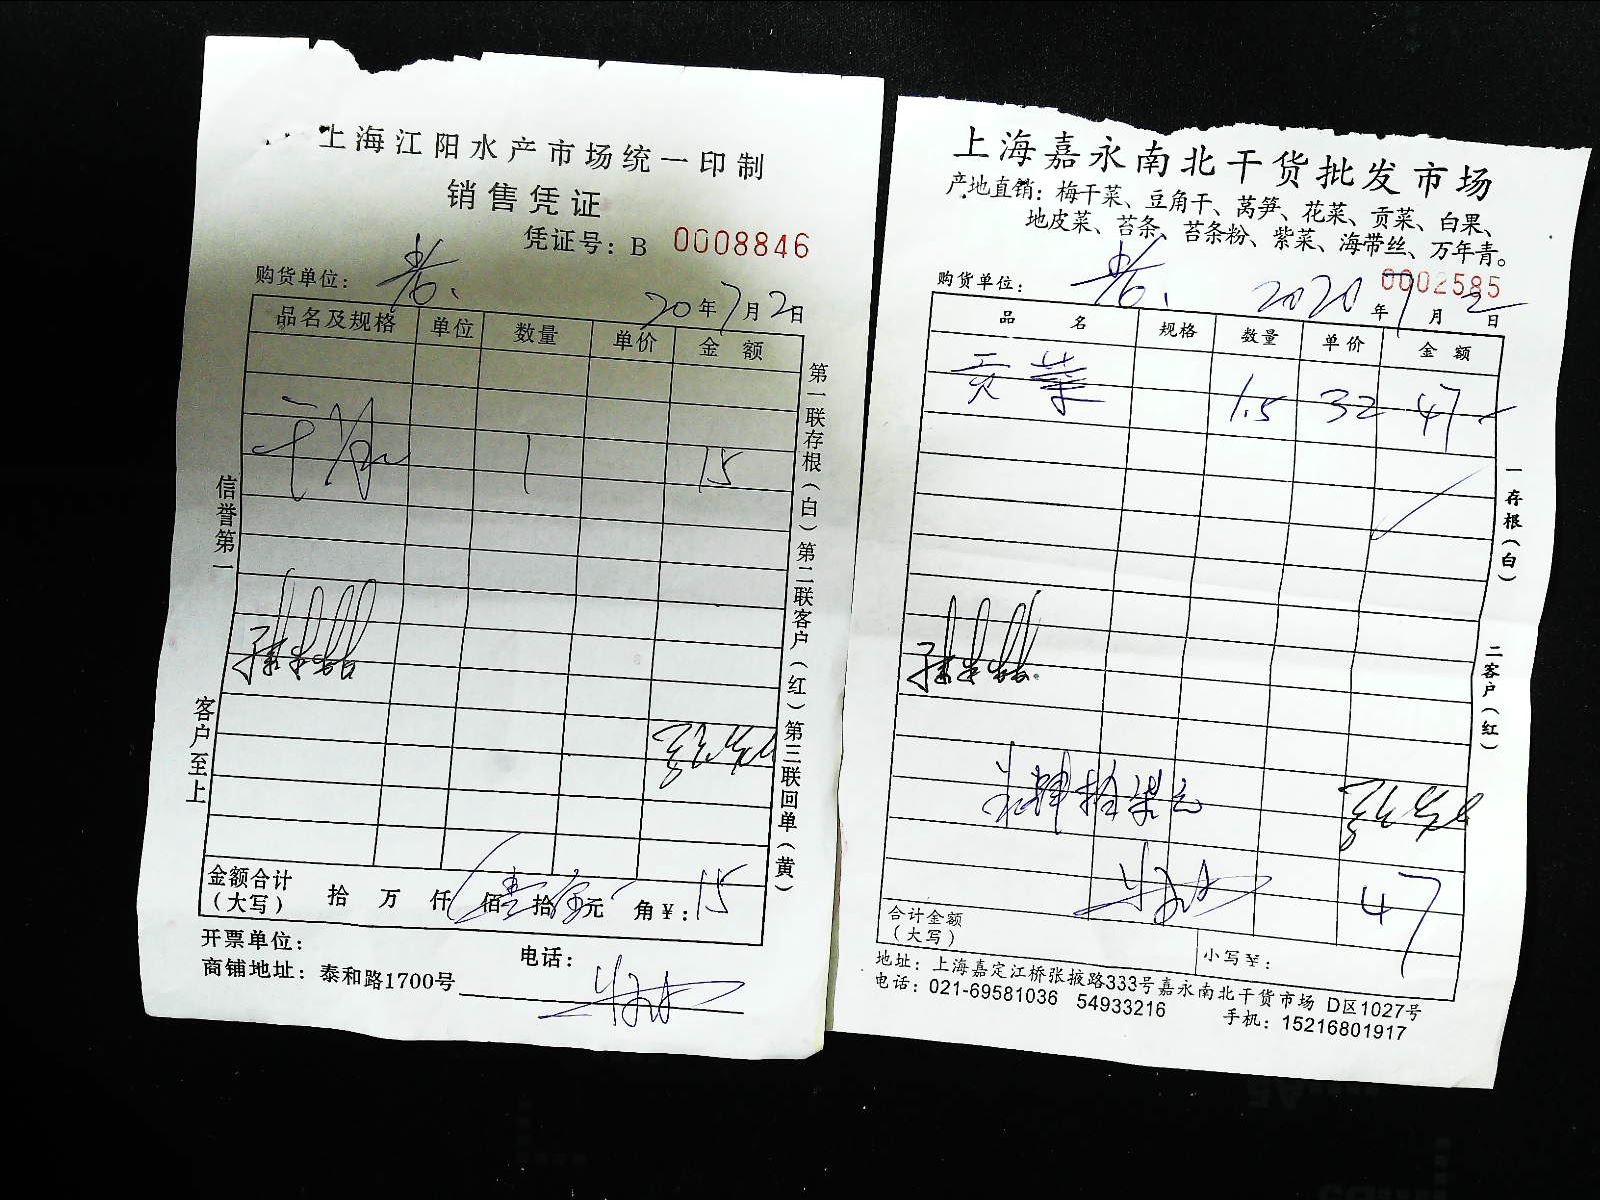 上海江阳水产市场统一印制
销售凭证
凭证号：B 0008846
购货单位：
20年7月2日
品名及规格 单位 数量 单价 金额
1 15
信誉第一
客户至上
第一联存根（白）第二联客户（红）第三联回单（黄）
金额合计（大写） 拾 万 仟 佰 拾 元 角 ¥：15
开票单位： 电话：
商铺地址：泰和路1700号
上海嘉永南北干货批发市场
产地直销：梅干菜、豆角干、莴笋、花菜、贡菜、白果、
地皮菜、苔条、苔条粉、紫菜、海带丝、万年青。
0002585
购货单位： 2020年7月2日
品名 规格 数量 单价 金额
贡菜 1.5 32 47
一存根（白）
二客户（红）
肆拾柒元
47
合计金额（大写） 小写¥：
地址：上海嘉定江桥张掖路333号嘉永南北干货市场 D区1027号
电话：021-69581036 54933216 手机：15216801917